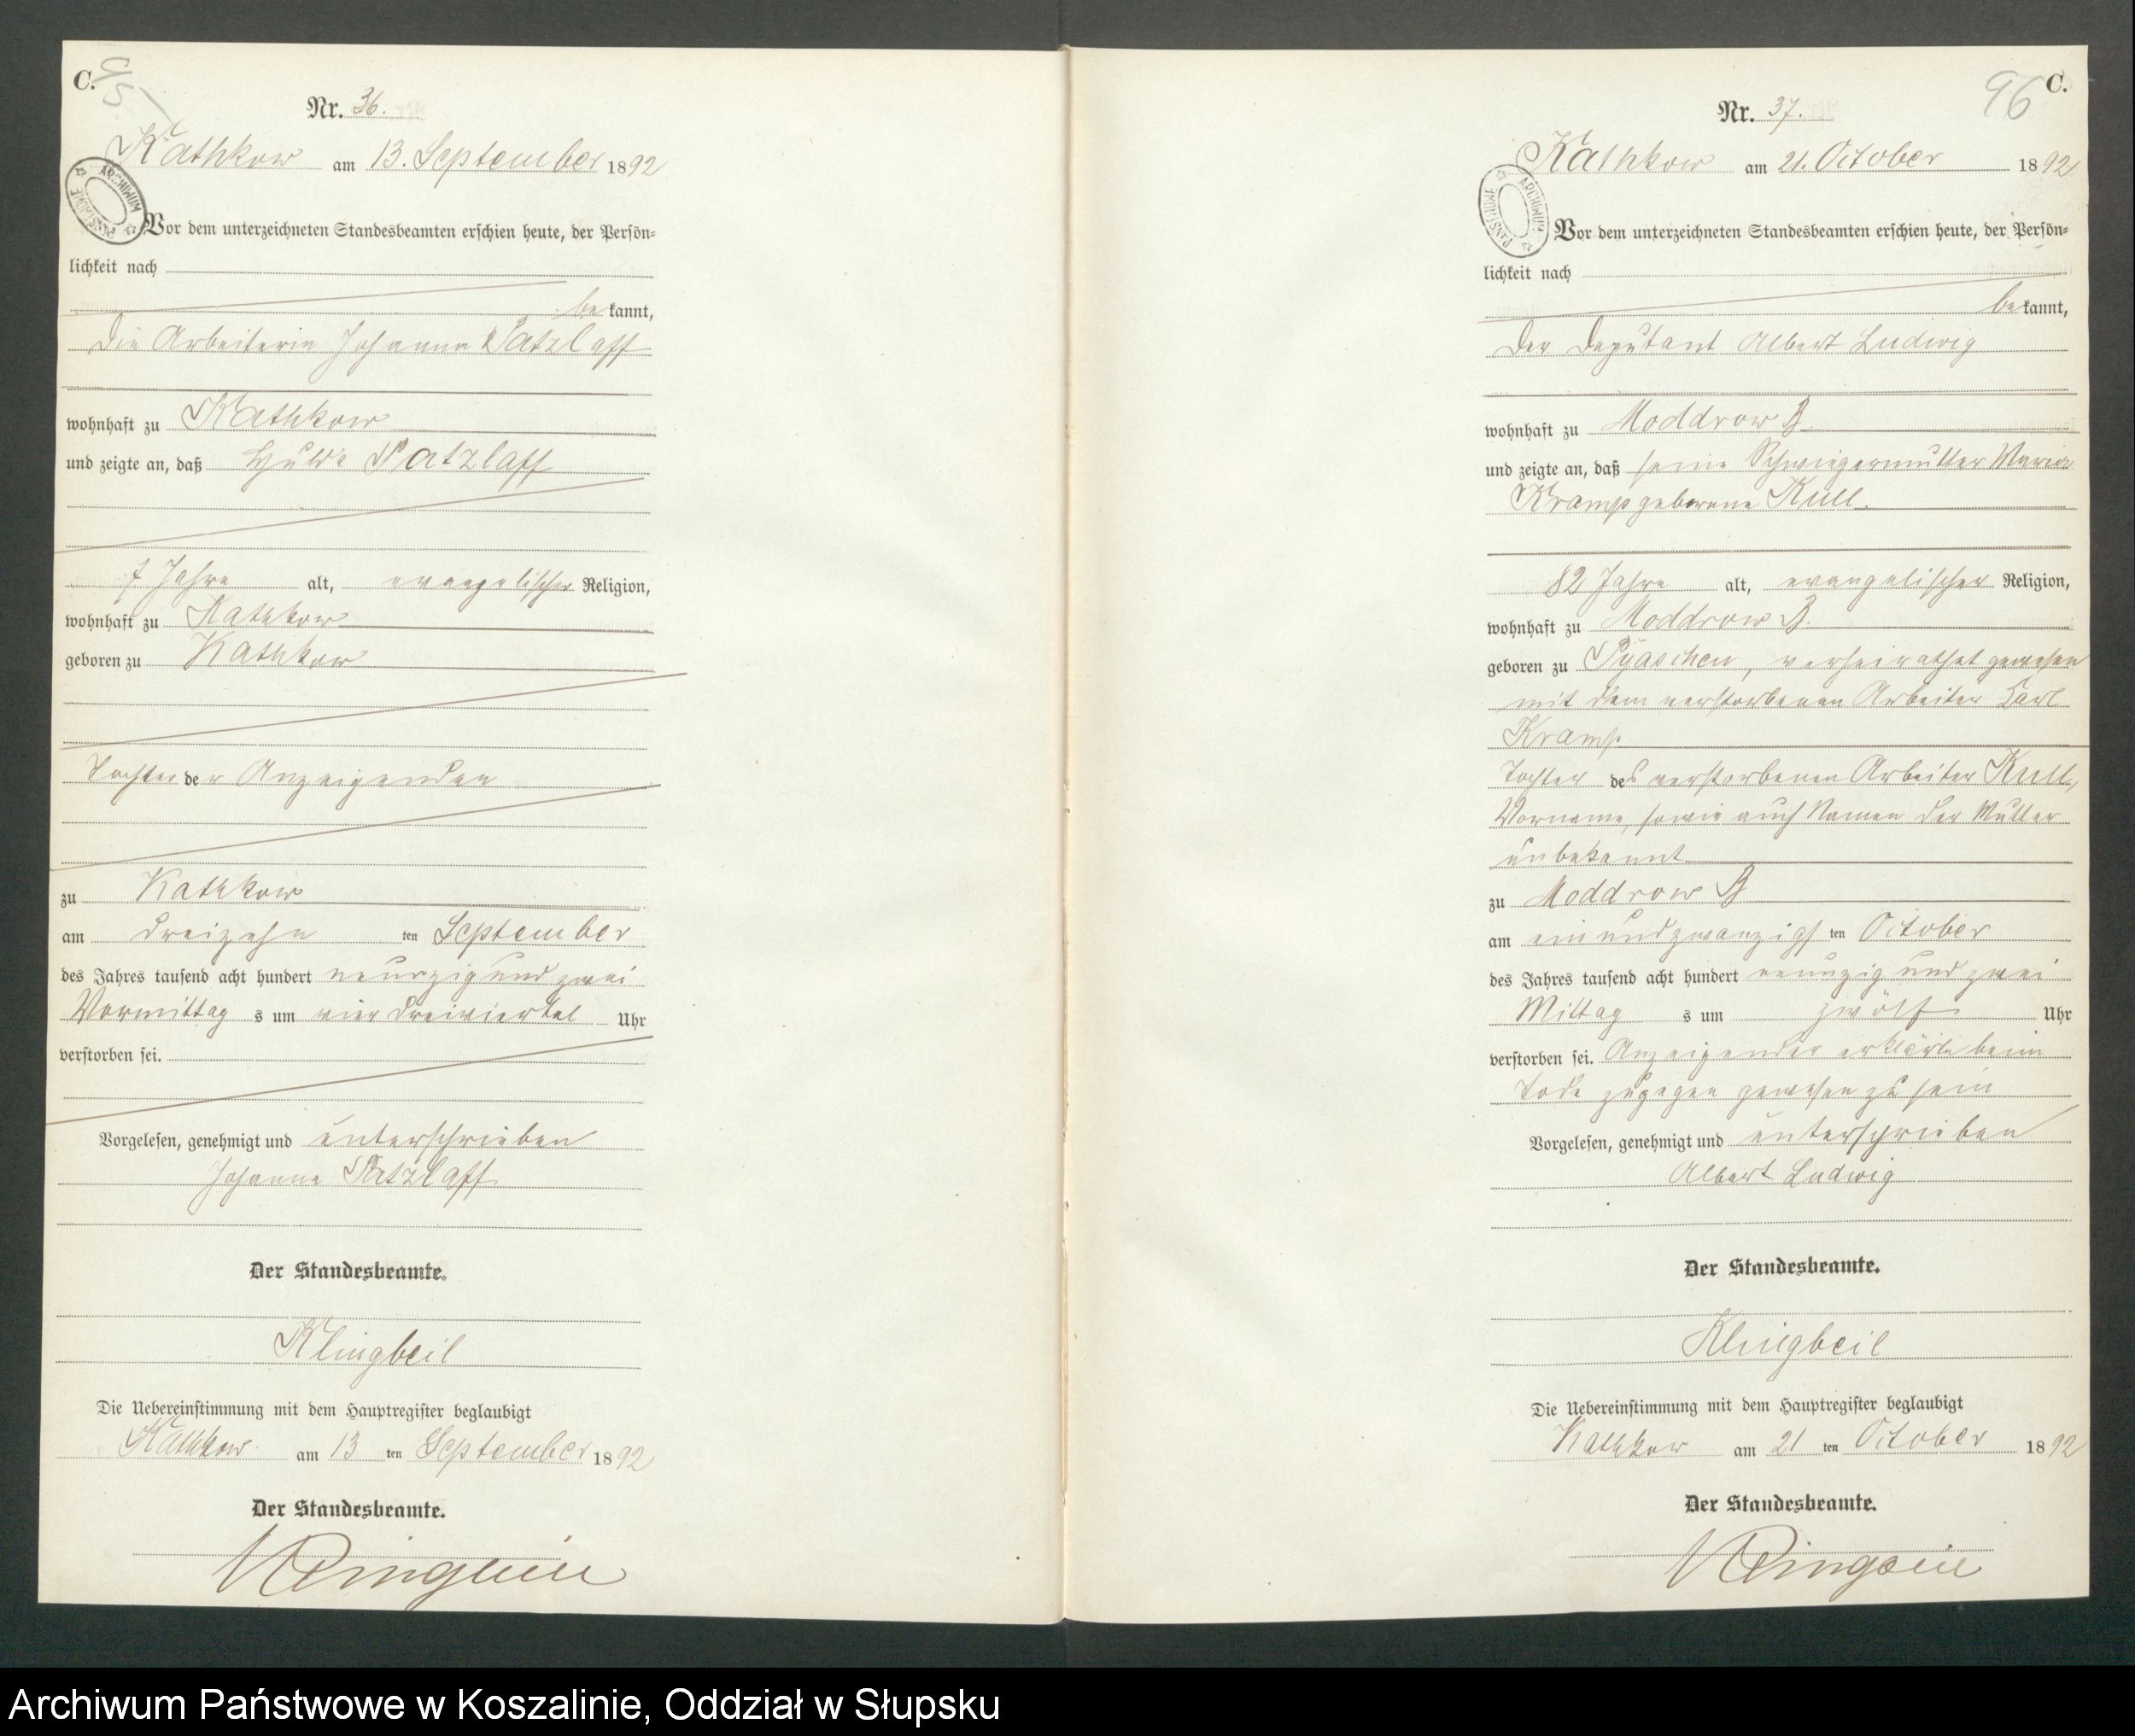 C.
95
Nr. 36.
Kathkow am 13. September 1892
ARCHIWUM PAŃSTWOWE
Vor dem unterzeichneten Standesbeamten erschien heute, der Persön=
lichkeit nach
bekannt,
die Arbeiterin Johanna Patzlaff
wohnhaft zu Kathkow
und zeigte an, daß Hulda Patzlaff
7 Jahre alt, evangelischer Religion,
wohnhaft zu Kathkow
geboren zu Kathkow
Tochter der Anzeigenden
zu Kathkow
am dreizehn ten September
des Jahres tausend acht hundert neunzig und zwei
Vormittag s um vier dreiviertel Uhr
verstorben sei.
Vorgelesen, genehmigt und unterschrieben
Johanna Patzlaff
Der Standesbeamte.
Klingbeil
Die Uebereinstimmung mit dem Hauptregister beglaubigt
Kathkow am 13 ten September 1892
Der Standesbeamte.
Klingbeil
96
C.
Nr. 37.
Kathkow am 21. October 1892
ARCHIWUM PAŃSTWOWE
Vor dem unterzeichneten Standesbeamten erschien heute, der Persön=
lichkeit nach
bekannt,
der Deputant Albert Ludwig
wohnhaft zu Moddrow B
und zeigte an, daß seine Schwiegermutter Maria
Kramp geborene Kull.
82 Jahre alt, evangelischer Religion,
wohnhaft zu Moddrow B.
geboren zu Pyaschen, verheirathet gewesen
mit dem verstorbenen Arbeiter Carl
Kramp
Tochter des verstorbenen Arbeiter Kull,
Vorname, sowie auch Namen der Mutter
unbekannt
zu Moddrow B
am einundzwanzigs ten October
des Jahres tausend acht hundert neunzig und zwei
Mittag s um zwölf Uhr
verstorben sei. Anzeigender erklärte beim
Tode zugegen gewesen zu sein
Vorgelesen, genehmigt und unterschrieben
Albert Ludwig
Der Standesbeamte.
Klingbeil
Die Uebereinstimmung mit dem Hauptregister beglaubigt
Kathkow am 21 ten October 1892
Der Standesbeamte.
Klingbeil
Archiwum Państwowe w Koszalinie, Oddział w Słupsku